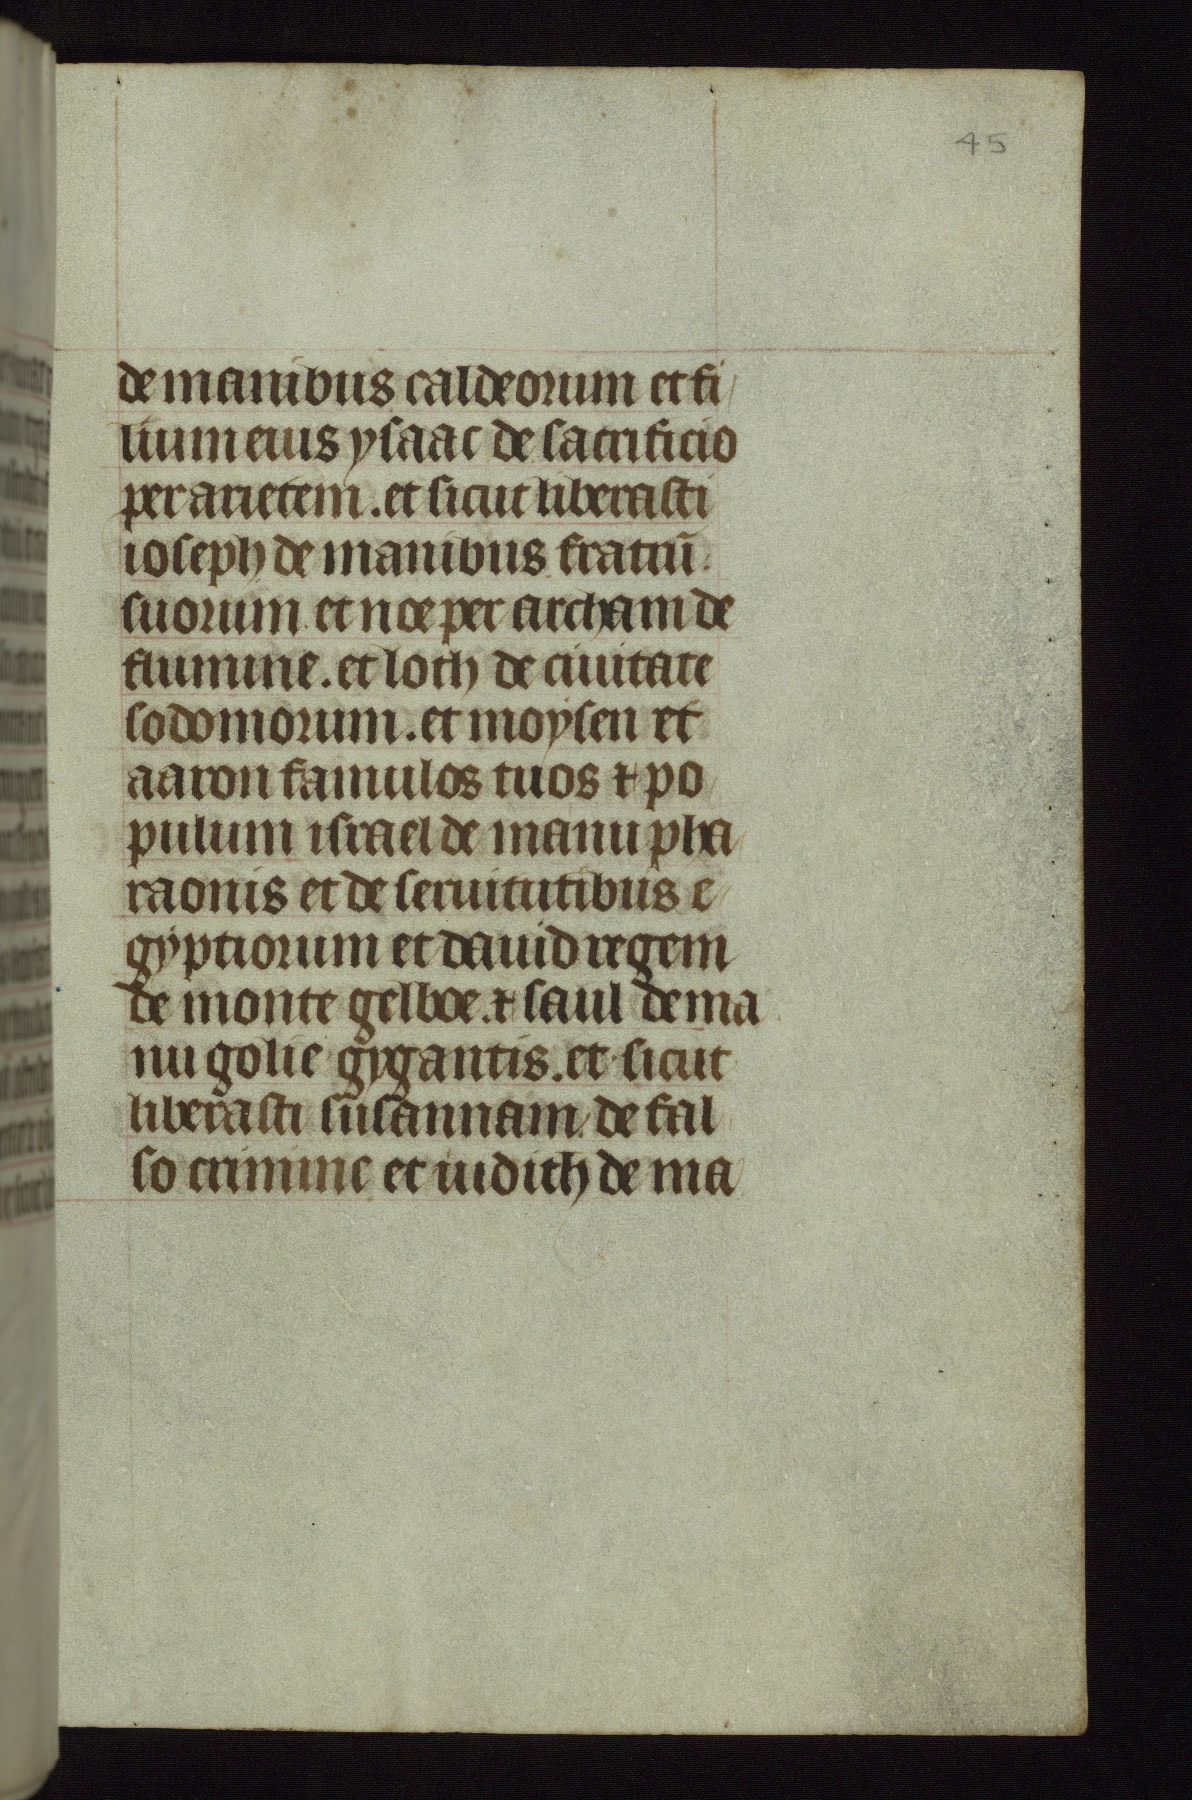 45
de manibus caldeorum et fi
lium eius ysaac de sacrificio
per arietem. et sicut liberasti
ioseph de manibus fratrū
suorum et noe per archam de
flumine. et loth de ciuitate
sodomorum. et moysen et
aaron famulos tuos ⁊ po
pulum israel de manu pha
raonis et de seruitutibus e
gyptiorum et dauid regem
de monte gelboe. ⁊ saul de ma
nu golie gygantis. et sicut
liberasti susannam de fal
so crimine et iudith de ma